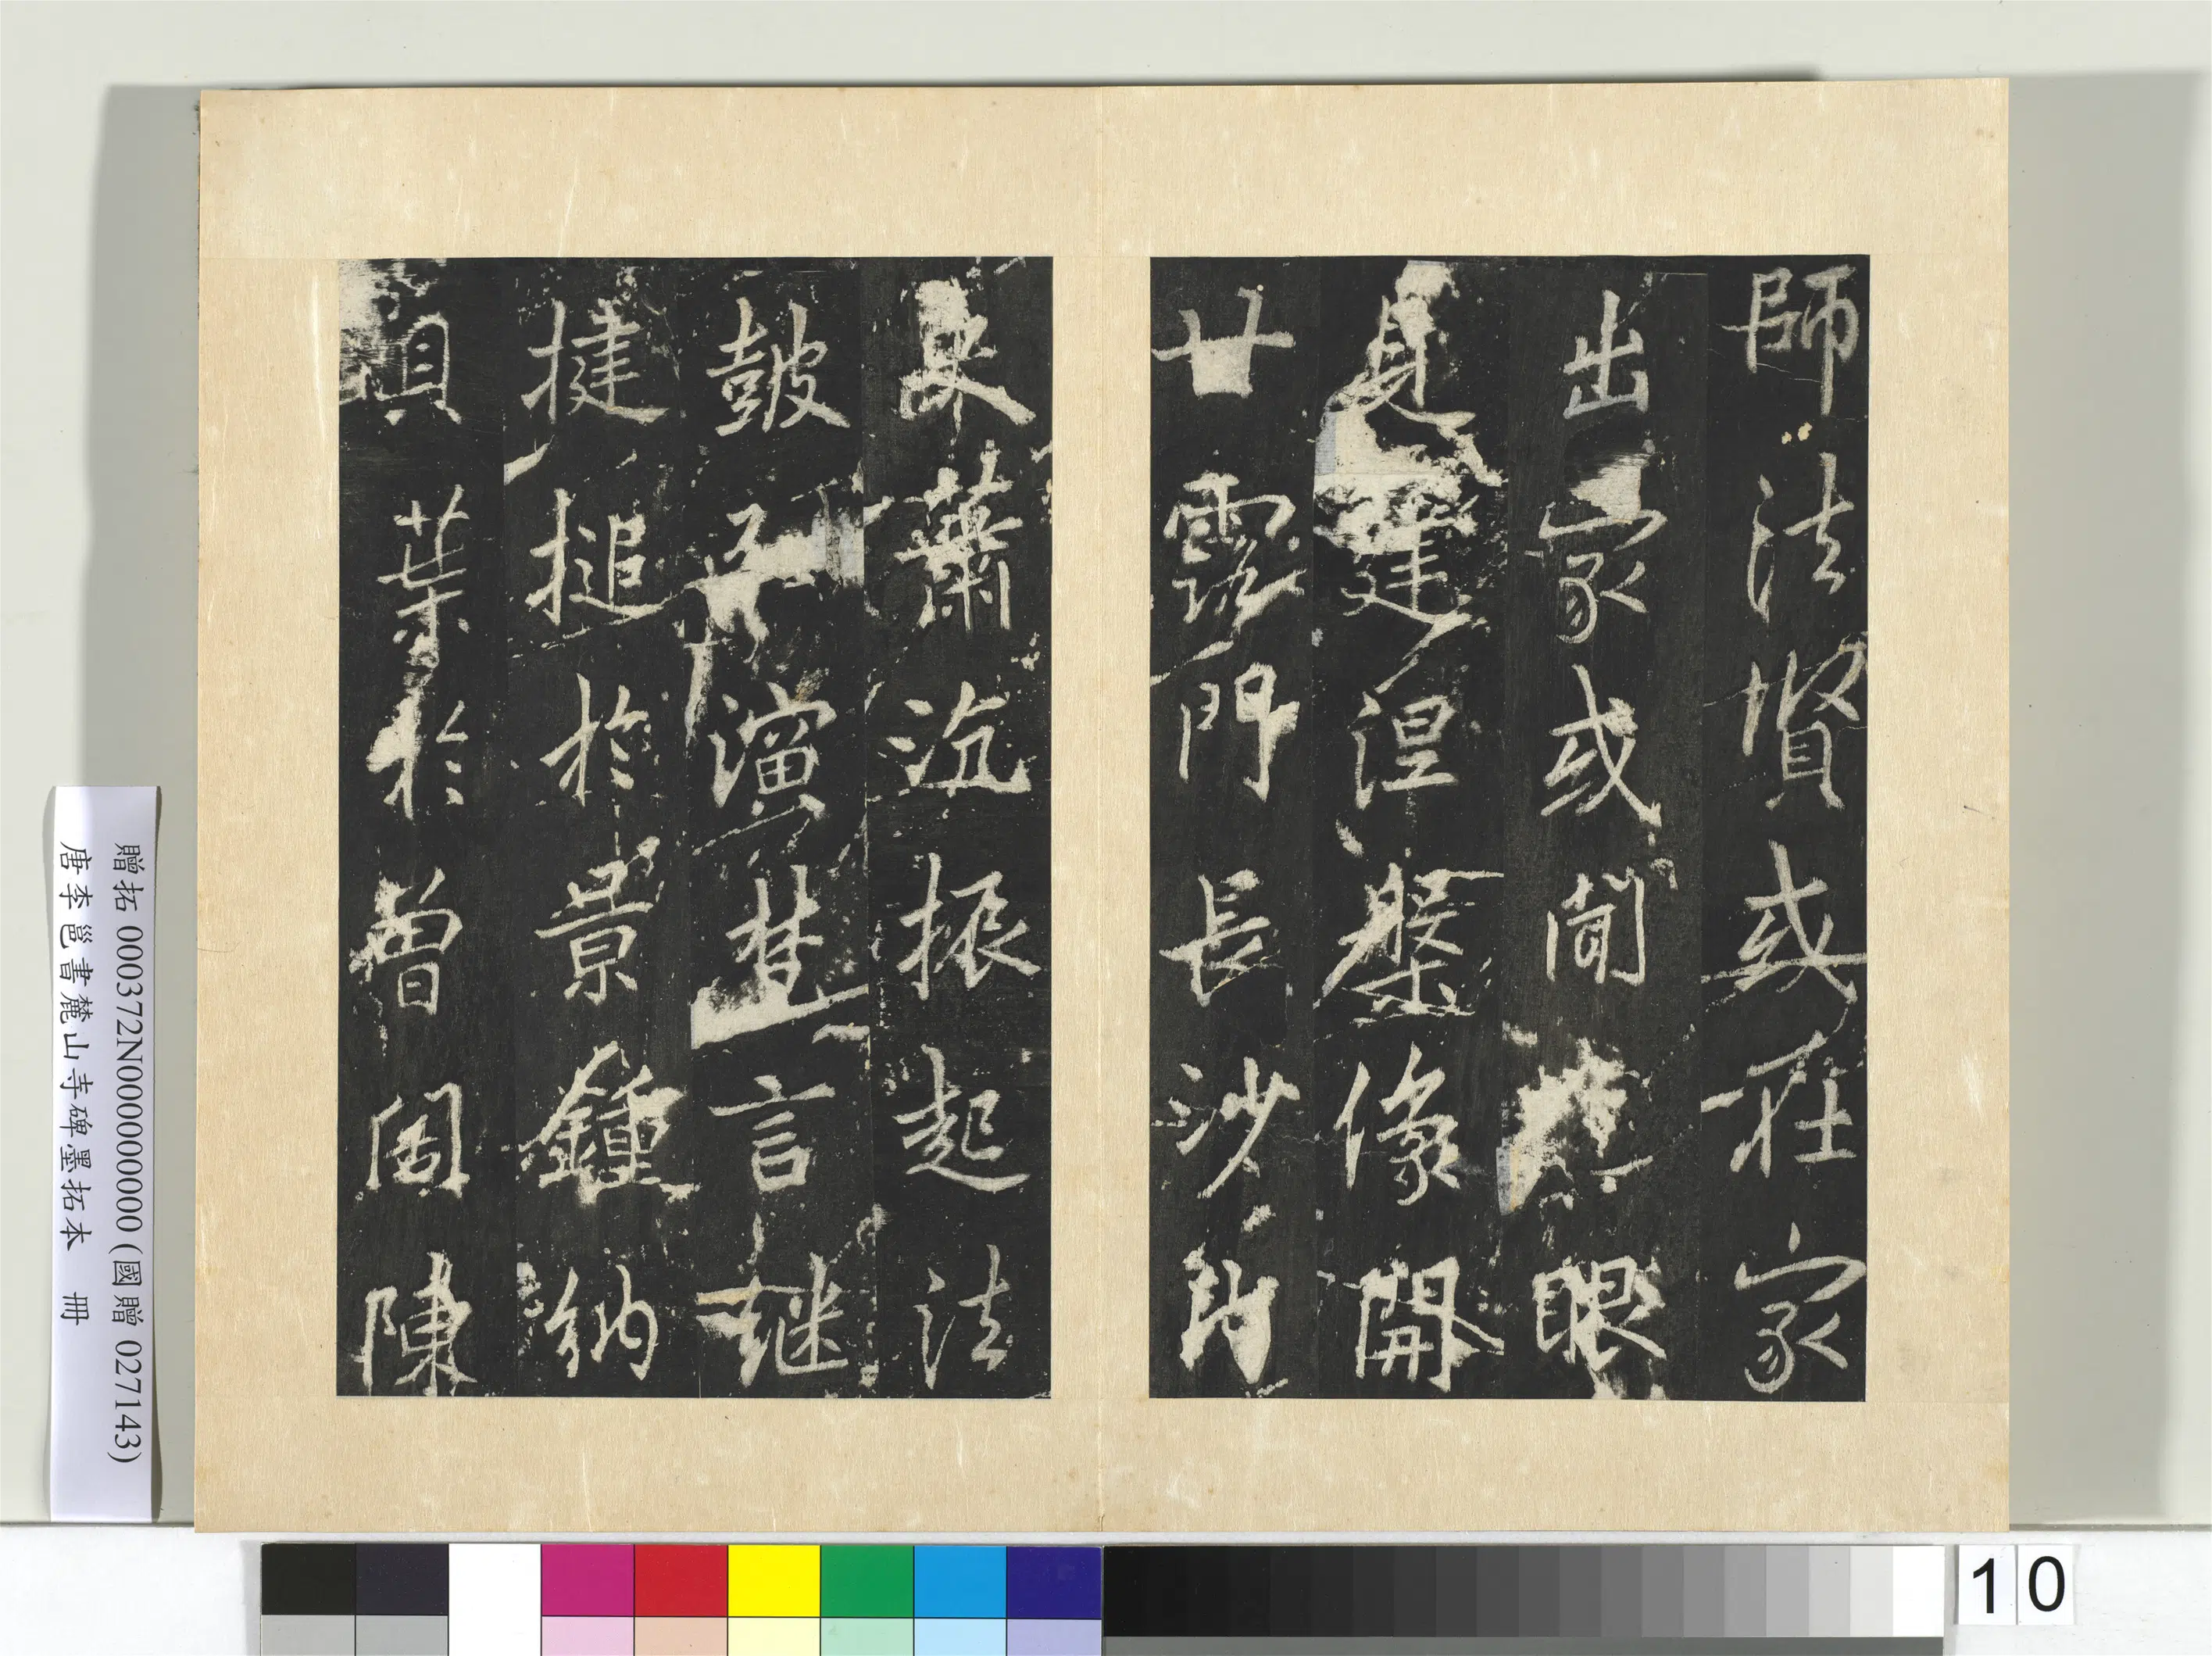 師法賢或在家
出家或聞眼
見建涅槃像開
甘露門長沙內
史蕭沉振起法
鼓弘演梵言继
揵搥於景鍾納
貝葉於曾閣陳
贈拓 000372N000000000 (國贈 027143)
唐李邕書麓山寺碑墨拓本 冊
10